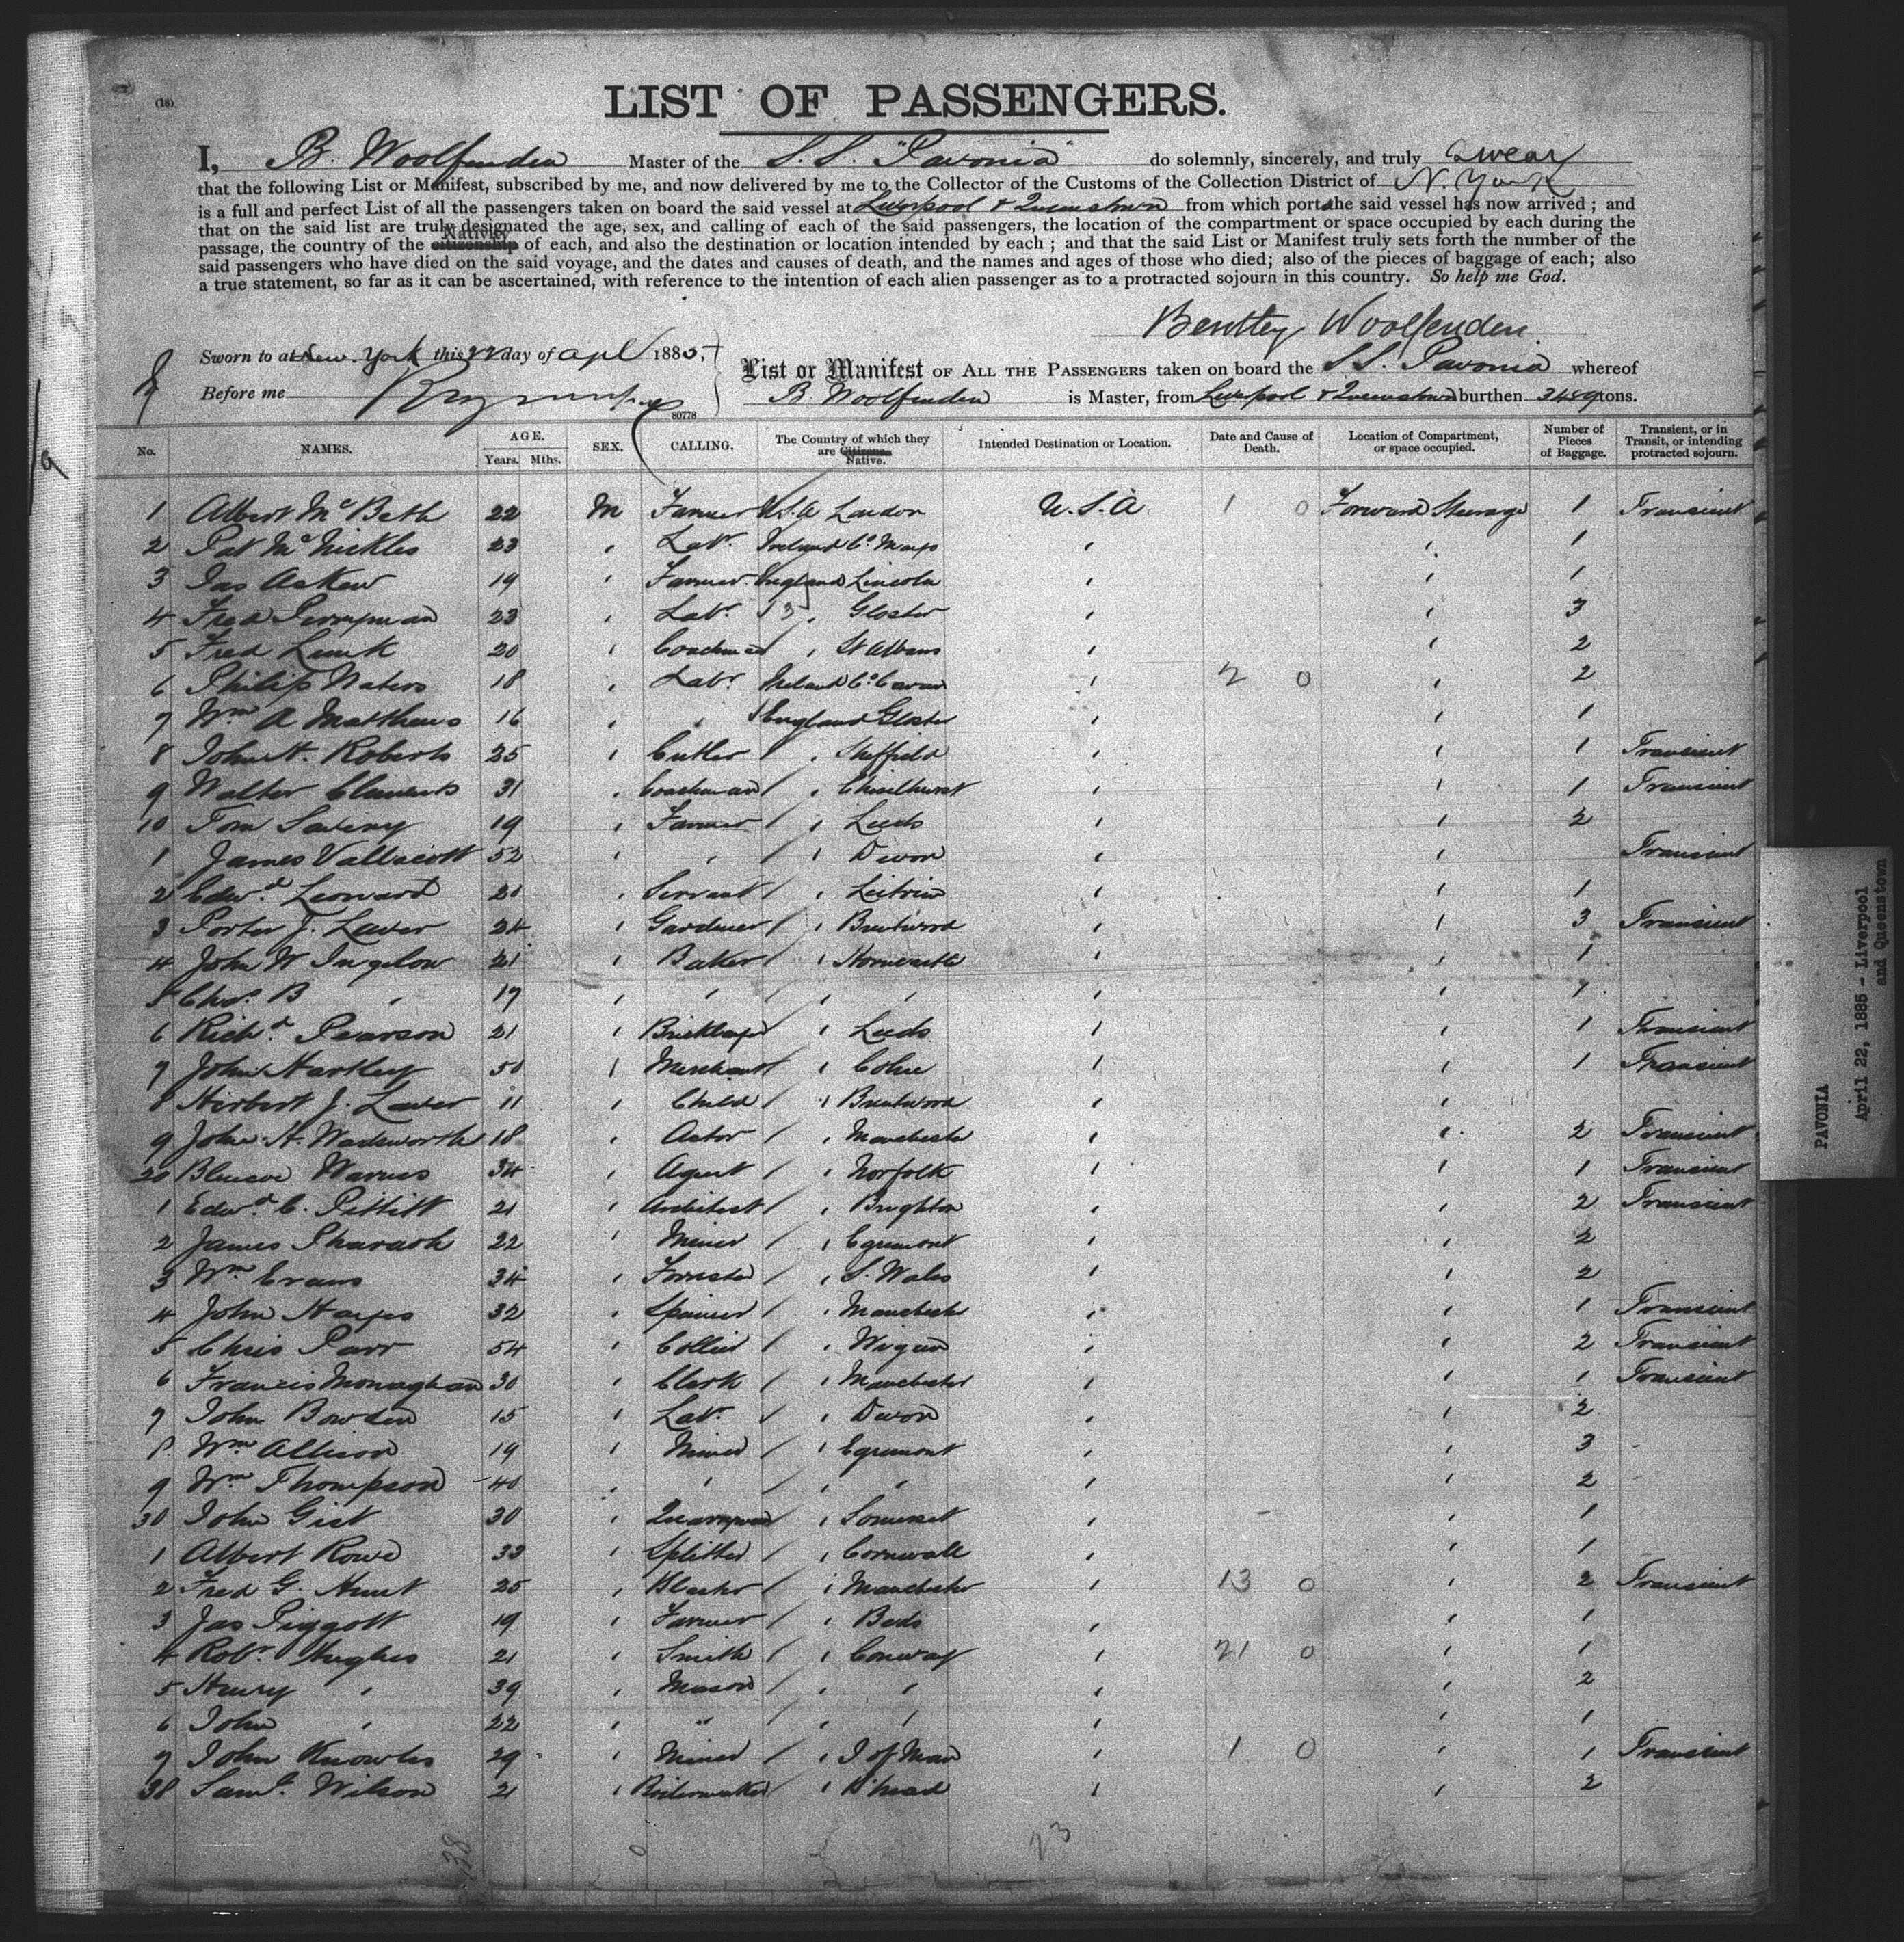 (18)
LIST OF PASSENGERS.
I, B. Woolfenden Master of the S.S. "Pavonia" do solemnly, sincerely, and truly Swear
that the following List or Manifest, subscribed by me, and now delivered by me to the Collector of the Customs of the Collection District of N. York
is a full and perfect List of all the passengers taken on board the said vessel at Liverpool & Queenstown from which ports the said vessel has now arrived; and
that on the said list are truly designated the age, sex, and calling of each of the said passengers, the location of the compartment or space occupied by each during the
passage, the country of the citizenship Nativity of each, and also the destination or location intended by each; and that the said List or Manifest truly sets forth the number of the
said passengers who have died on the said voyage, and the dates and causes of death, and the names and ages of those who died; also of the pieces of baggage of each; also
a true statement, so far as it can be ascertained, with reference to the intention of each alien passenger as to a protracted sojourn in this country. So help me God.
Bentley Woolfenden.
Sworn to at New York this 22 day of Apl 1885,
List or Manifest OF ALL THE PASSENGERS taken on board the S.S. Pavonia whereof
Before me
80778
B Woolfenden is Master, from Liverpool & Queenstown burthen 3489 tons.
No. NAMES. AGE. Years. Mths. SEX. CALLING. The Country of which they are Citizens. Native. Intended Destination or Location. Date and Cause of Death. Location of Compartment, or space occupied. Number of Pieces of Baggage. Transient, or in Transit, or intending protracted sojourn.
1 Albert McBeth 22 M Farmer U.S.A London U.S.A 1 0 Forward Steerage 1 Transient
2 Pat McNickles 23 " Labr. Ireland Co. Mayo " " 1
3 Jas Askew 19 " Farmer England Lincoln " " 1
4 Fred Perryman 23 " Labr. " Gloster " " 3
5 Fred Lunk 20 " Coachman " St Albans " " 2
6 Philip Waters 18 " Labr Ireland Co. Cavan " 2 0 " 2
7 Wm A Matthews 16 " " England Gloster " " 1
8 John H. Roberts 25 " Cutler " Sheffield " " 1 Transient
9 Walter Clements 31 " Coachman " Chiselhurst " " 1 Transient
10 Tom Saveny 19 " Farmer " Leeds " " 2
1 James Vallacott 52 " " " Devon " " Transient
2 Edwd. Leonard 20 " Servant " Leitrim " " 1
3 Porter J. Laver 24 " Gardener " Brentwood " " 3 Transient
4 John W Ingelow 21 " Baker " Horncastle " " 1
5 Chas. B " 17 " " " " " " 1
6 Richd. Pearson 21 " Bricklayer " Leeds " " 1 Transient
7 John Hartley 50 " Merchant " Colne " " 1 Transient
8 Herbert J. Laver 11 " Child " Brentwood " "
9 John H. Wadsworth 18 " Actor " Manchester " " 2 Transient
20 Blencoe Warnes 34 " Agent " Norfolk " " 1 Transient
1 Edwd. C. Pettitt 21 " Architect " Brighton " " 2 Transient
2 James Pharaoh 22 " Miner " Egremont " " 2
3 Wm Evans 34 " Forester " S. Wales " " 2
4 John Hayes 32 " Spinner " Manchester " " 1 Transient
5 Chris Parr 54 " Collier " Wigan " " 2 Transient
6 Francis Monaghan 30 " Clerk " Manchester " " 1 Transient
7 John Bowden 15 " Labr. " Devon " " 2
8 Wm Allison 19 " Miner " Egremont " " 3
9 Wm Thompson 40 " " " " " " 2
30 John Gist 30 " Quarryman " Somerset " " 1
1 Albert Rowe 33 " Splitter " Cornwall " " 1
2 Fred G. Hunt 25 " " Manchester " 13 0 " 2 Transient
3 Jas Piggott 19 " Farmer " Beds " " 1
4 Robr. Hughes 21 " Smith " Conway " 21 0 " 1
5 Henry " 39 " Mason " " " " 2
6 John " 22 " " " " " " 1
7 John Knowles 29 " Miner " I of Man " 1 0 " 1 Transient
38 Saml. Wilson 21 " Boilermaker " B'head " " 2
38 0 23
PAVONIA
April 22, 1885 - Liverpool
and Queenstown